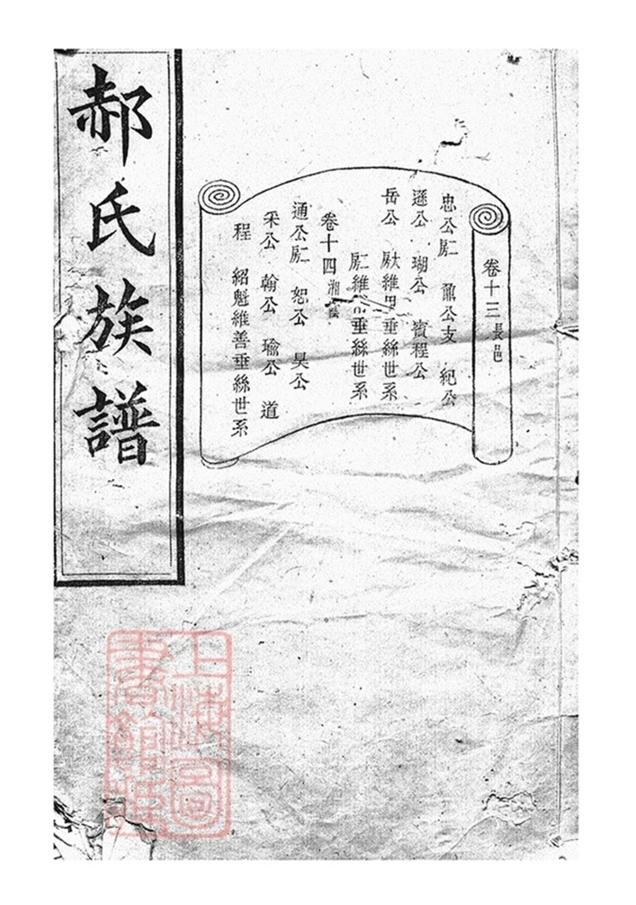 郝氏族譜
卷十三 長邑
忠公房 鼐公支 紀公
遜公 瑚公 賓程公
岳公 房大維 垂絲世系
房仁維 垂絲世系
卷十四 湘
通公房 恕公 昊公
采公 翰公 瑜公 道
程 紹魁維善垂絲世系
上海圖書館藏